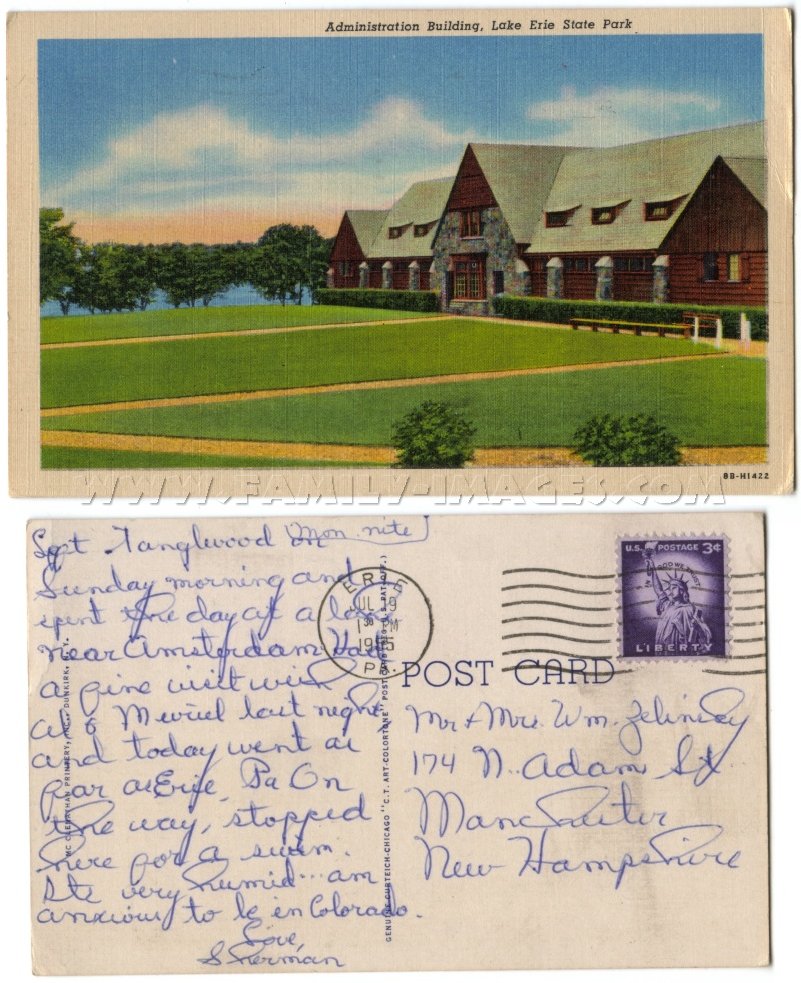 Administration Building, Lake Erie State Park
BB-H1422
WWW.FAMILY-IMAGES.COM
Mon nite
Left Tanglewood on
Sunday morning and
spent the day at a lake
near Amsterdam Had
a fine visit with
Al & Meriel last night,
and today went as
far as Erie, Pa On
the way, stopped
here for a swim.
Its very humid... am
anxious to be in Colorado.
Love,
Sherman
MC CLENATHAN PRINTERY, INC., DUNKIRK, N. Y.
GENUINE CURTEICH-CHICAGO "C.T. ART-COLORTONE" POST CARD (REG. U.S. PAT. OFF.)
ERIE
JUL 19
PM
PA.
U.S. POSTAGE 3¢
IN GOD WE TRUST
LIBERTY
POST CARD
Mr & Mrs. Wm. Zelinsky
174 N. Adam St.
Manchester
New Hampshire